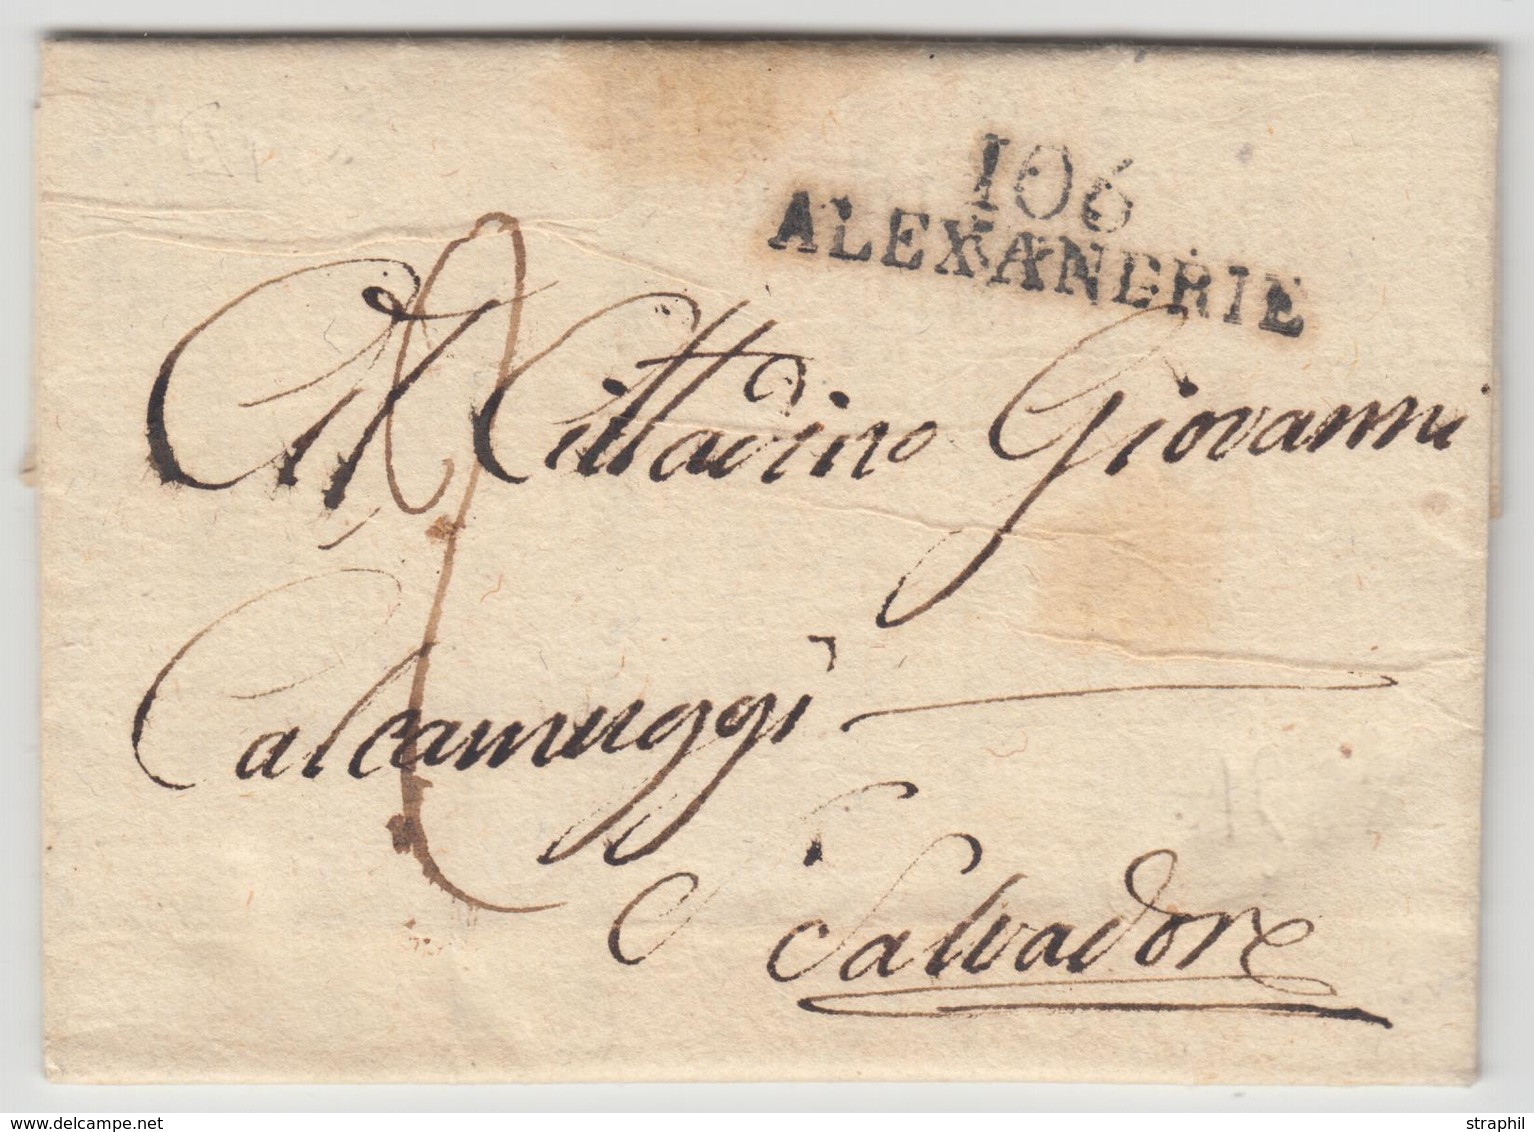 106
ALEXANDRIE
Al Cittadino Giovanni
Calcamuggi
S. Salvadore
delcampe.net
straphil